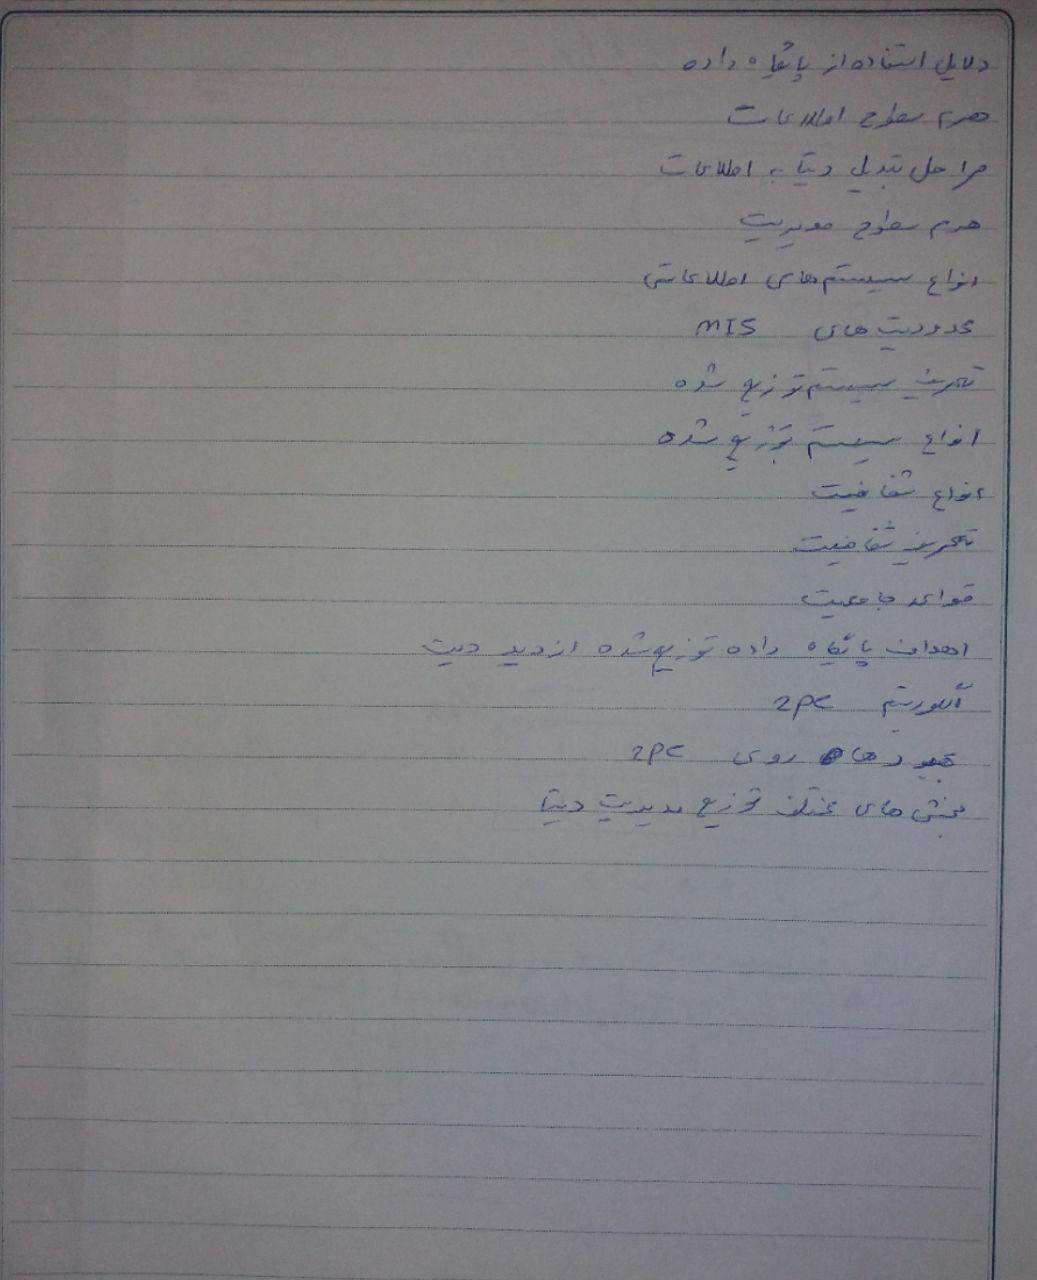 دلایل استفاده از پایگاه داده
هرم سطوح اطلاعات
مراحل تبدیل دیتا به اطلاعات
هرم سطوح مدیریت
انواع سیستم‌های اطلاعاتی
محدودیت های MIS
تعریف سیستم توزیع شده
انواع سیستم توزیع شده
انواع شفافیت
تعریف شفافیت
قواعد جامعیت
اهداف پایگاه داده توزیع شده از دید دیت
الگوریتم 2PC
بهبودها روی 2PC
بخش های مختلف توزیع مدیریت دیتا